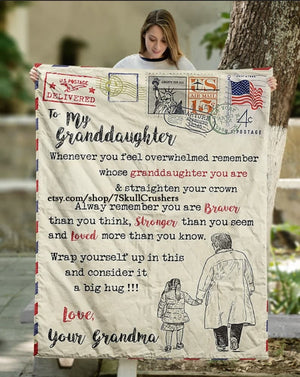 U.S. POSTAGE
DELIVERED
To My
Granddaughter
Whenever you feel overwhelmed remember
whose granddaughter you are
& straighten your crown
etsy.com/shop/7SkullCrushers
Alway remember you are Braver
than you think, Stronger than you seem
and Loved more than you know.
Wrap yourself up in this
and consider it
a big hug !!!
Love,
Your Grandma